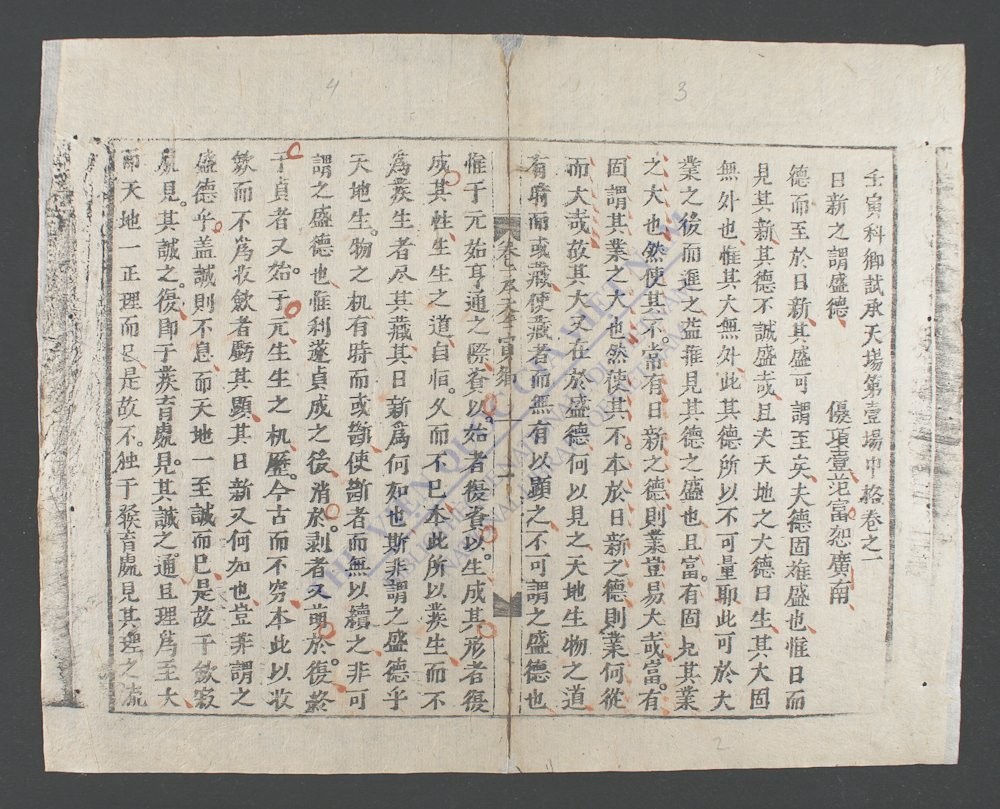 壬寅科鄉試承天場第壹場中格卷之一
日新之謂盛德 優項壹范富恕廣南
德而至於日新其盛可謂至矣夫德固雄盛也惟日而
見其新其德不誠盛或且夫天地之大德曰生其大固
無外也惟其大無外此其德所以不可量耶此可於大
業之後而進之益推見其德之盛也且富有固尤其業
之大也然使其不常有日新之德則業豈易大或富有
固謂其業之大也然使其不本於日新之德則業何從
而大哉故其大又在於盛德何以見之天地生物之道
有時而或藏使藏者而無有以顯之不可謂之盛德也
惟于元始亨通之際資以始者復資以生成其形者復
成其性生生之道自恒久而不已本此所以發生而不
為發生者尽其藏其日新為何如也斯非謂之盛德乎
天地生物之机有時而或斷使斷者而無以續之非可
謂之盛德也惟利遂貞成之後消於剥者又萌於復終
于貞者又始于元生生之机歷今古而不窮本此以收
歛而不為收歛者羁其顯其日新又何如也豈非謂之
盛德乎盖誠則不息而天地一至誠而已是故于歛寂
處見其誠之復即于發育處見其誠之通且理為至大
而天地一正理而足是故不独于發育處見其理之流
3
4
2